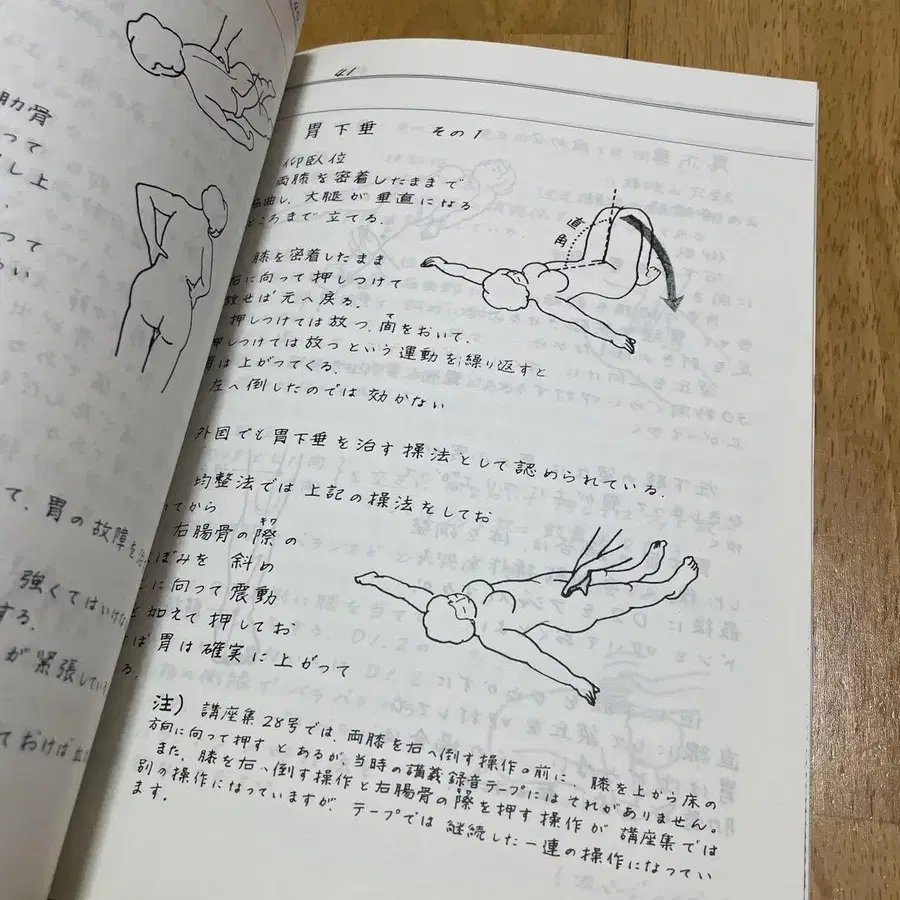 肋骨
って
し上
って
て、胃の故障を
強くてはいけな
する。
が緊張してい
ておけば
41
胃下垂 その1
仰臥位
両膝を密着したままで
屈曲し、大腿が垂直になる
ところまで立てる。
直角
膝を密着したまま
右に向って押しつけて
放せば元へ戻る。
押しつけては放つ、間をおいて、
押しつけては放つという運動を繰り返すと
胃は上がってくる。
左へ倒したのでは効かない
外国でも胃下垂を治す操法として認められている。
均整法では上記の操法をしてお
いてから
右腸骨の際の
キワ
ぼみを斜め
に向って震動
加えて押してお
ば胃は確実に上がって
る。
注) 講座集28号では、両膝を右へ倒す操作の前に、膝を上から床の
方向に向って押すとあるが、当時の講義録音テープにはそれがありません。
また、膝を右へ倒す操作と右腸骨の際を押す操作が講座集では
別の操作になっていますが、テープでは継続した一連の操作になってい
ます。